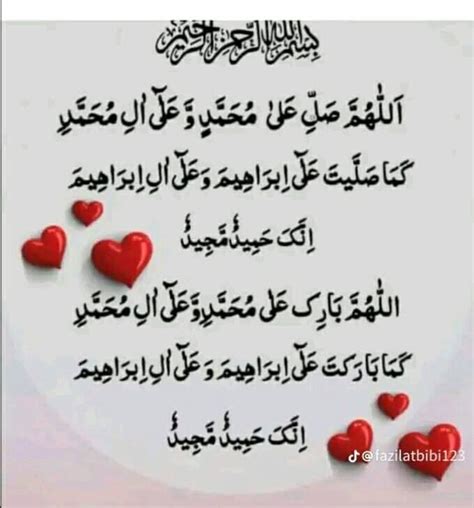 بِسْمِ اللهِ الرَّحْمٰنِ الرَّحِيْمِ
اَللّٰهُمَّ صَلِّ عَلٰى مُحَمَّدٍ وَّ عَلٰٓى اٰلِ مُحَمَّدٍ
كَمَا صَلَّيْتَ عَلٰٓى اِبْرَاهِيْمَ وَ عَلٰٓى اٰلِ اِبْرَاهِيْمَ
اِنَّكَ حَمِيْدٌ مَّجِيْدٌ
اَللّٰهُمَّ بَارِكْ عَلٰى مُحَمَّدٍ وَّ عَلٰٓى اٰلِ مُحَمَّدٍ
كَمَا بَارَكْتَ عَلٰٓى اِبْرَاهِيْمَ وَ عَلٰٓى اٰلِ اِبْرَاهِيْمَ
اِنَّكَ حَمِيْدٌ مَّجِيْدٌ
@fazilatbibi123